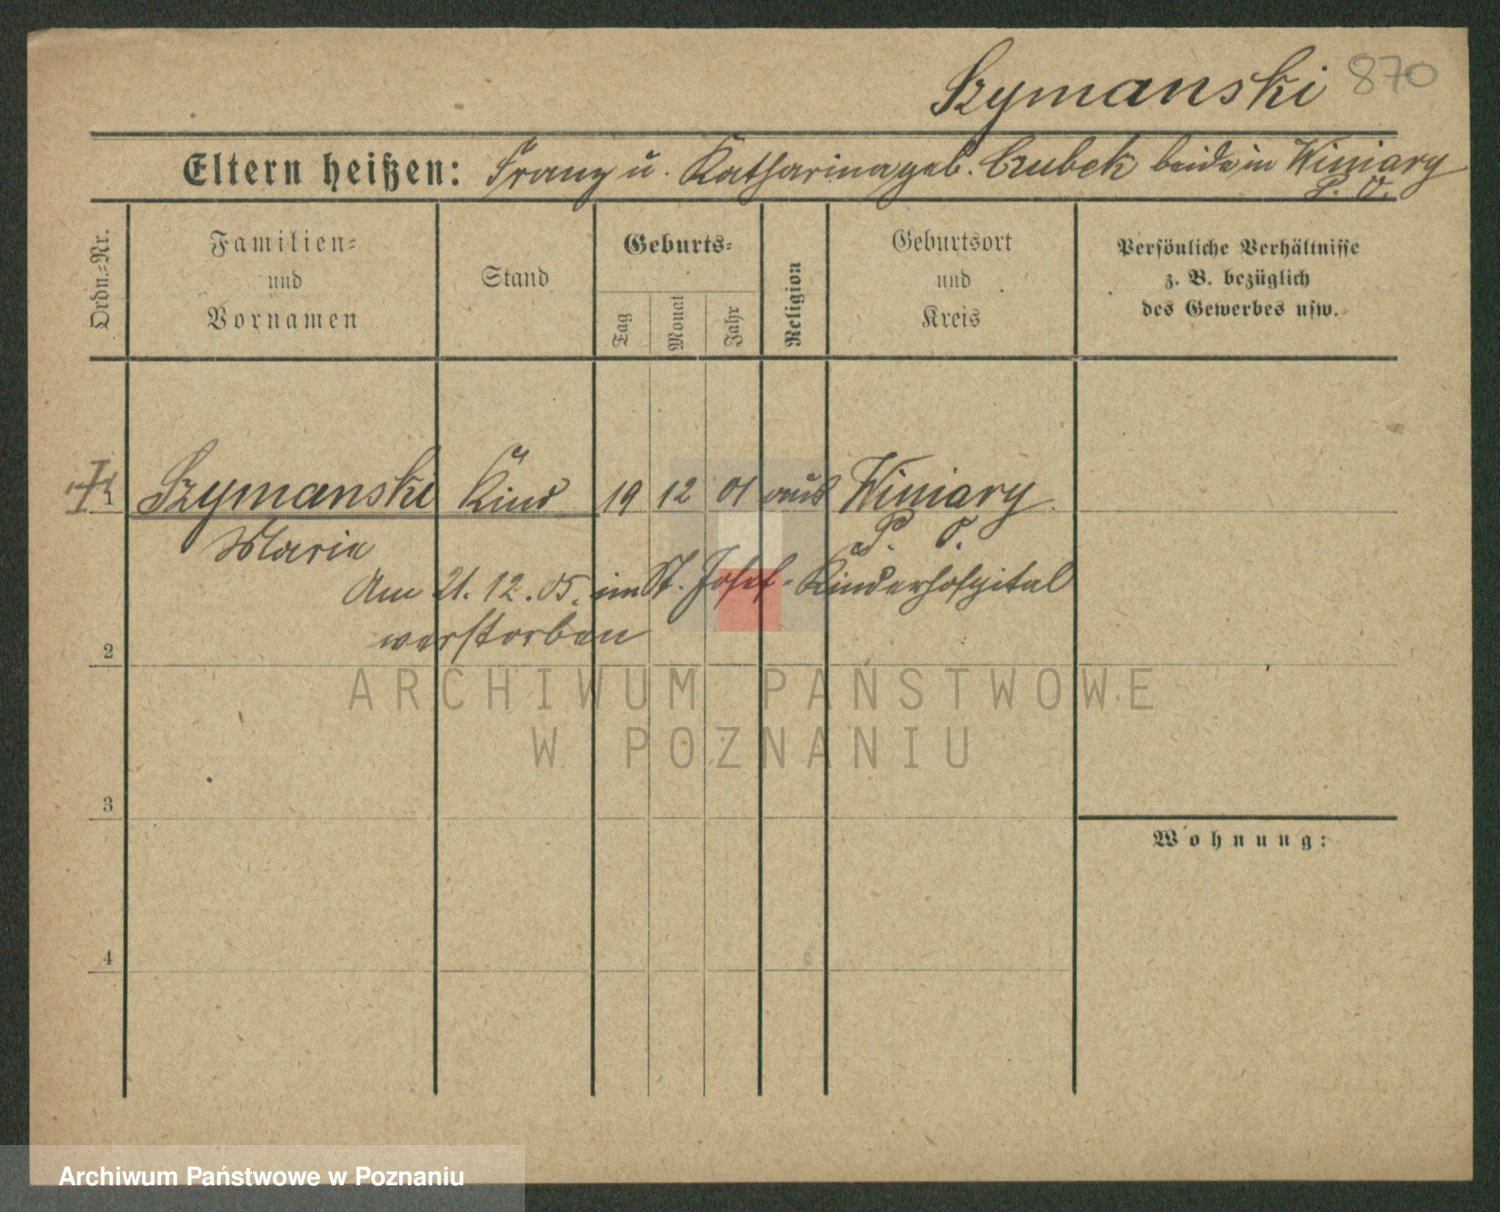 Szymanski 870
Eltern heißen: Franz u. Katharina geb. Czubek beide in Winiary
P. O.
Ordn.-Nr.
Familien-
und
Vornamen
Stand
Geburts-
Tag
Monat
Jahr
Religion
Geburtsort
und
Kreis
Persönliche Verhältnisse
z. B. bezüglich
des Gewerbes usw.
1 Szymanski Kind 19 12 01 aus Winiary
Maria P. O.
Am 21. 12. 05. im St. Josef-Kinderhospital
verstorben
2
ARCHIWUM PAŃSTWOWE
W POZNANIU
3
Wohnung:
4
Archiwum Państwowe w Poznaniu